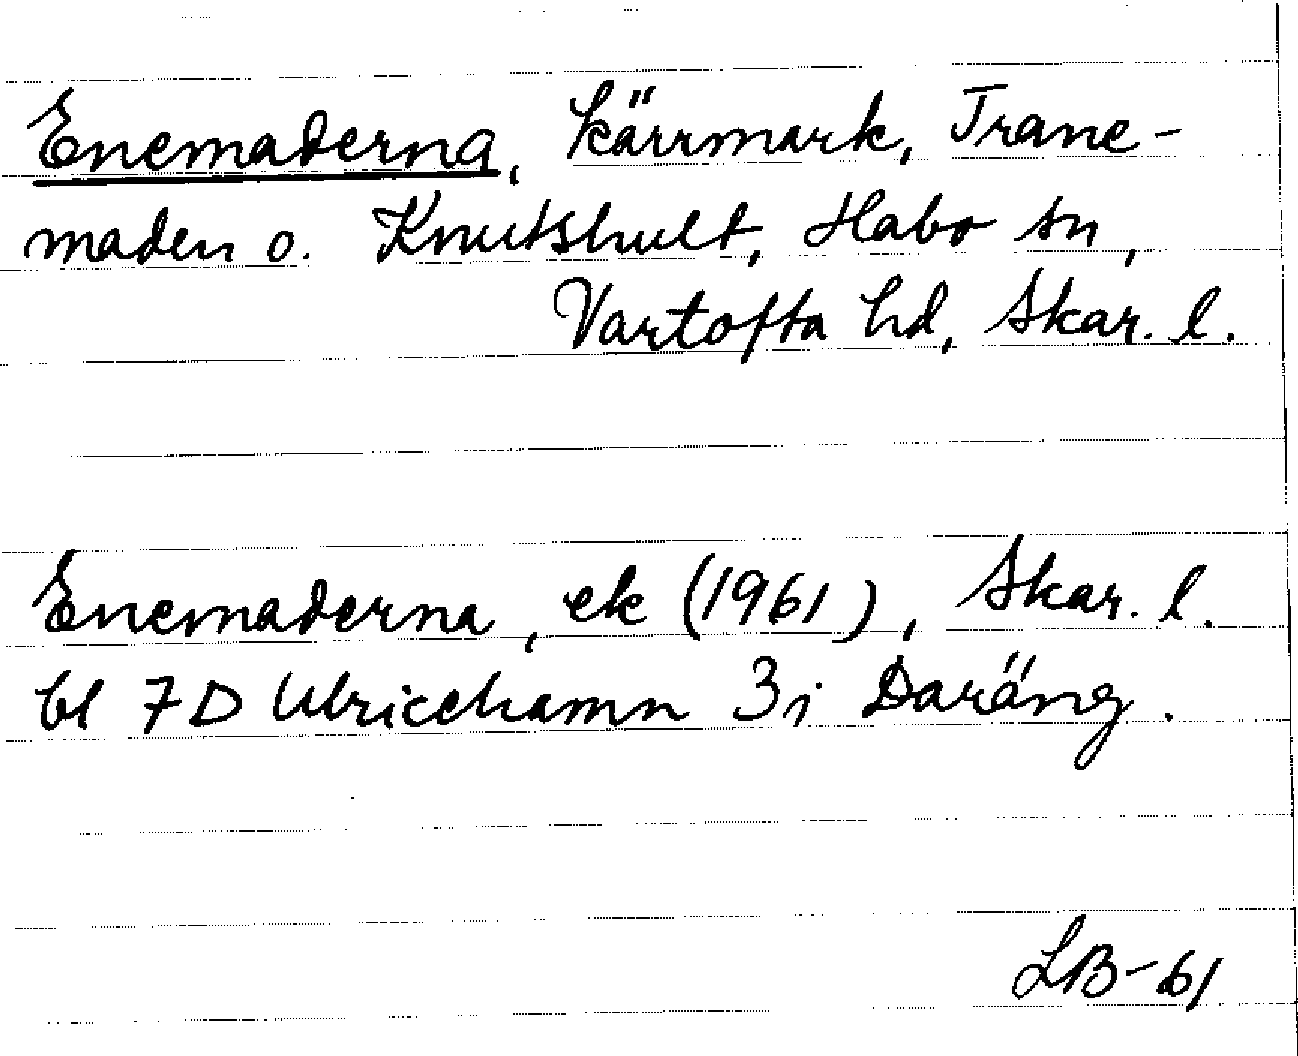 Enemaderna, kärrmark, Trane-
maden o. Knutshult, Habo sn,
Vartofta hd, Skar. l.
Enemaderna, ek (1961), Skar. l.
bl 7D Ulricehamn 3j Daräng.
LB-61